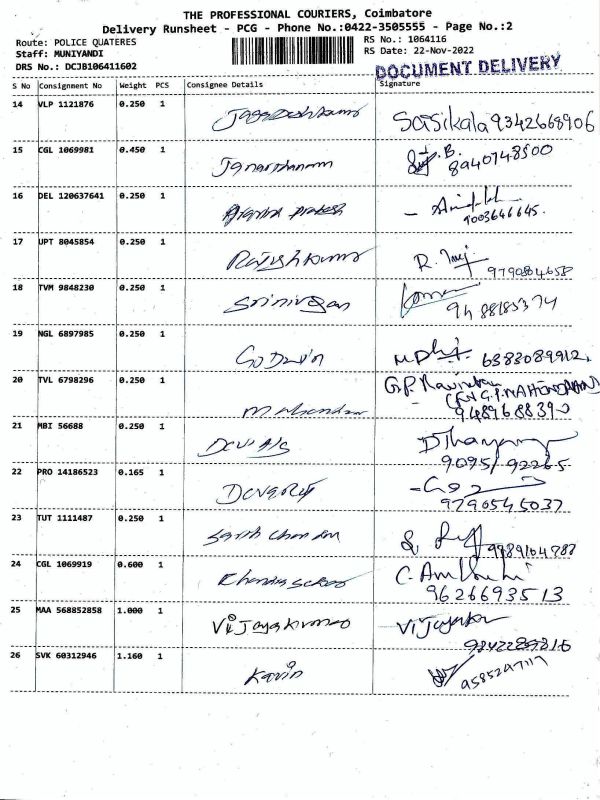 THE PROFESSIONAL COURIERS, Coimbatore
Delivery Runsheet - PCG - Phone No.:0422-3505555 - Page No.:2
Route: POLICE QUATERES
RS No.: 1064116
Staff: MUNIYANDI
RS Date: 22-Nov-2022
DRS No.: DCJB106411602
DOCUMENT DELIVERY
S No Consignment No Weight PCS Consignee Details Signature
14 VLP 1121876 0.250 1 Jagadeshkumar Sasikala 9342668906
15 CGL 1069981 0.450 1 Janarthanam B.
8940748500
16 DEL 120637641 0.250 1 prakash
9003646645.
17 UPT 8045854 0.250 1 Rajeshkumar R.
9790884658
18 TVM 9848230 0.250 1 Srinivasan Kumar
94 88185374
19 NGL 6897985 0.250 1 Godwin 6383089912
20 TVL 6798296 0.250 1 Mahendran G.P. Ravindran
(For G.P. MAHENDRAN)
9489688390
21 MBI 56688 0.250 1
9095192265
22 PRO 14186523 0.165 1
9790545037
23 TUT 1111487 0.250 1 9789104787
24 CGL 1069919 0.600 1 C.
9626693513
25 MAA 568852858 1.000 1 Vijayakumar Vijayakr
26 SVK 60312946 1.160 1 Kavin